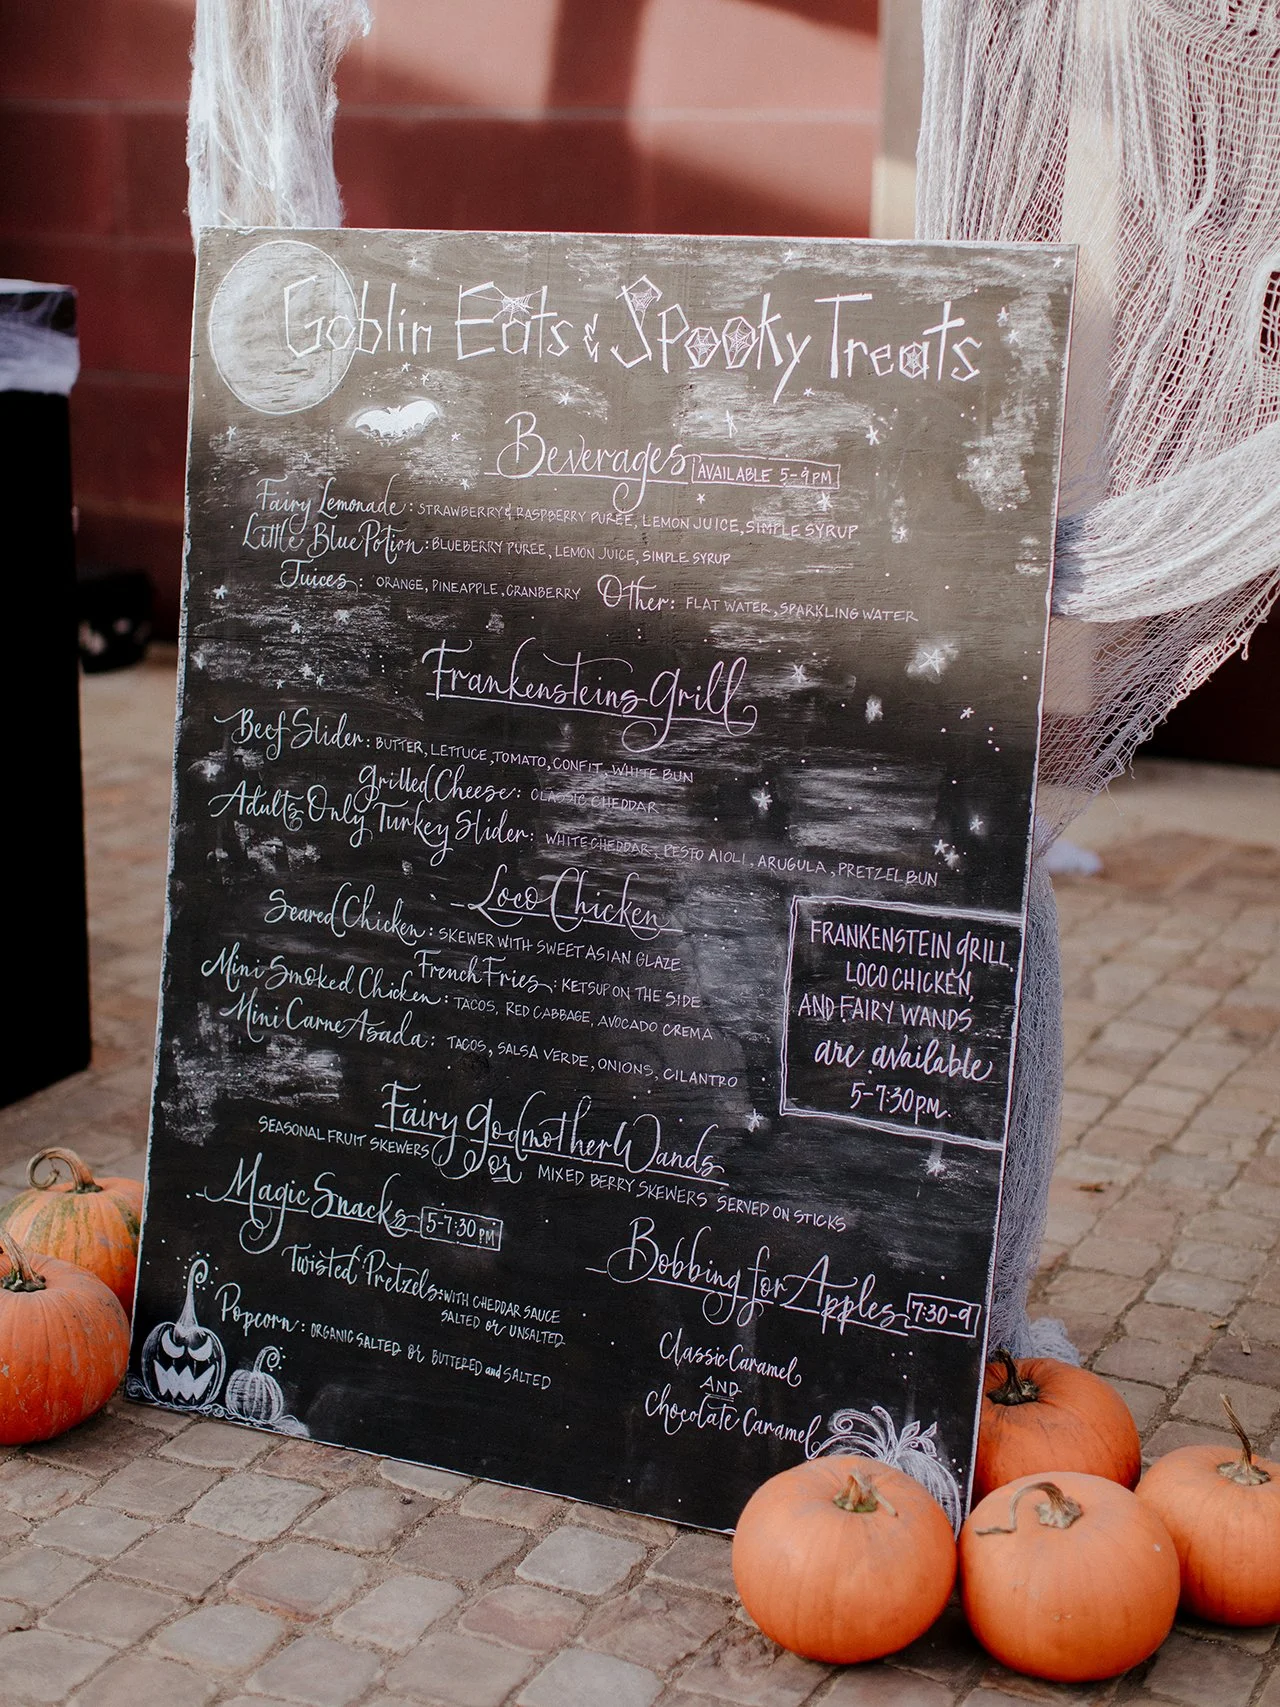 Goblin Eats & Spooky Treats
Beverages AVAILABLE 5-9PM
Fairy Lemonade: STRAWBERRY & RASPBERRY PUREE, LEMON JUICE, SIMPLE SYRUP
Little Blue Potion: BLUEBERRY PUREE, LEMON JUICE, SIMPLE SYRUP
Juices: ORANGE, PINEAPPLE, CRANBERRY Other: FLAT WATER, SPARKLING WATER
Frankensteins Grill
Beef Slider: BUTTER, LETTUCE, TOMATO, CONFIT, WHITE BUN
Grilled Cheese: CLASSIC CHEDDAR
Adults Only Turkey Slider: WHITE CHEDDAR, PESTO AIOLI, ARUGULA, PRETZEL BUN
Loco Chicken
Seared Chicken: SKEWER WITH SWEET ASIAN GLAZE
French Fries: KETSUP ON THE SIDE
Mini Smoked Chicken: TACOS, RED CABBAGE, AVOCADO CREMA
Mini Carne Asada: TACOS, SALSA VERDE, ONIONS, CILANTRO
FRANKENSTEIN GRILL,
LOCO CHICKEN,
AND FAIRY WANDS
are available
5-7:30PM.
Fairy Godmother Wands
SEASONAL FRUIT SKEWERS or MIXED BERRY SKEWERS SERVED ON STICKS
Magic Snacks 5-7:30 PM
Twisted Pretzels: WITH CHEDDAR SAUCE
SALTED or UNSALTED
Popcorn: ORGANIC SALTED or BUTTERED and SALTED
Bobbing for Apples 7:30-9
Classic Caramel
AND
Chocolate Caramel